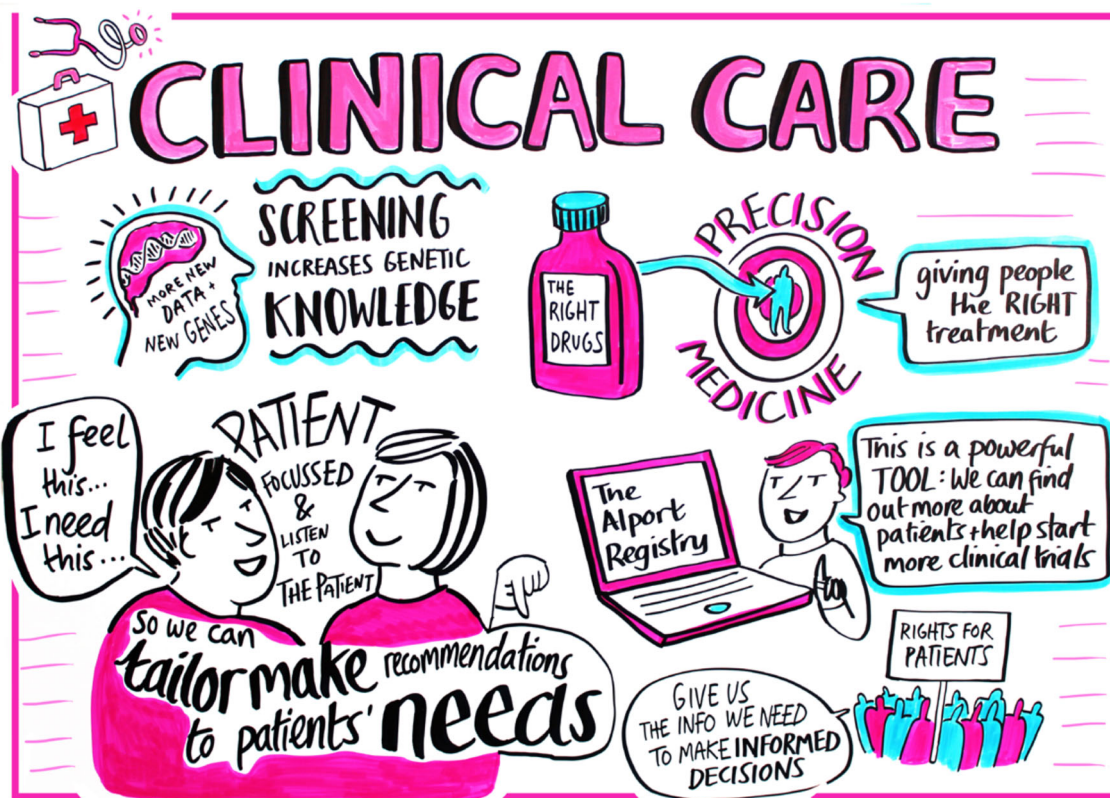 CLINICAL CARE
MORE NEW
DATA +
NEW GENES
SCREENING
INCREASES GENETIC
KNOWLEDGE
THE
RIGHT
DRUGS
PRECISION
MEDICINE
giving people
the RIGHT
treatment
I feel
this...
I need
this...
PATIENT
FOCUSSED
&
LISTEN
TO
THE PATIENT
So we can
tailor make recommendations
to patients' needs
The
Alport
Registry
This is a powerful
TOOL: We can find
out more about
patients + help start
more clinical trials
RIGHTS FOR
PATIENTS
GIVE US
THE INFO WE NEED
TO MAKE INFORMED
DECISIONS